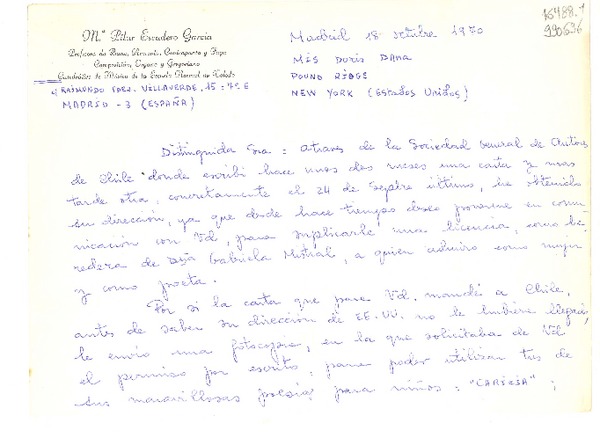 16488.1
Mª Pilar Escudero García
Profesora de Piano, Armonía, Contrapunto y Fuga
Composición, Organo y Gregoriano
Catedrático de Música de la Escuela Normal de Toledo
RAIMUNDO FDEZ. VILLAVERDE, 15 : 7º E
MADRID - 3 (ESPAÑA)
Madrid 18 octubre 1970
MIS DORIS DANA
POUND RIDGE
NEW YORK (ESTADOS UNIDOS)
Distinguida Sra : a través de la Sociedad General de Autores
de Chile donde escribí hace unos dos meses una carta y mas
tarde otra, concretamente el 24 de Sepbre último, he obtenido
su dirección, ya que desde hace tiempo deseo ponerme en comu-
nicación con Vd, para suplicarle una licencia, como he-
redera de Dña Gabriela Mistral, a quien admiro como mujer
y como poeta.
Por si la carta que para Vd. mandé a Chile,
antes de saber su dirección de EE.UU. no le hubiere llegado,
le envio una fotocopia, en la que solicitaba de Vd.
el permiso por escrito, para poder utilizar tres de
sus maravillosas poesías para niños : "CARICIA" ;